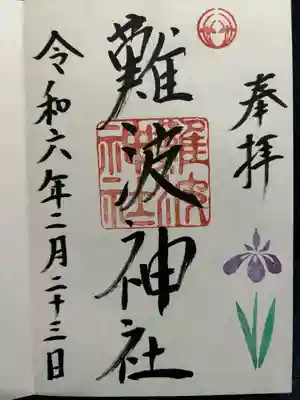 奉拝
難波神社
難波
神社
令和六年二月二十三日